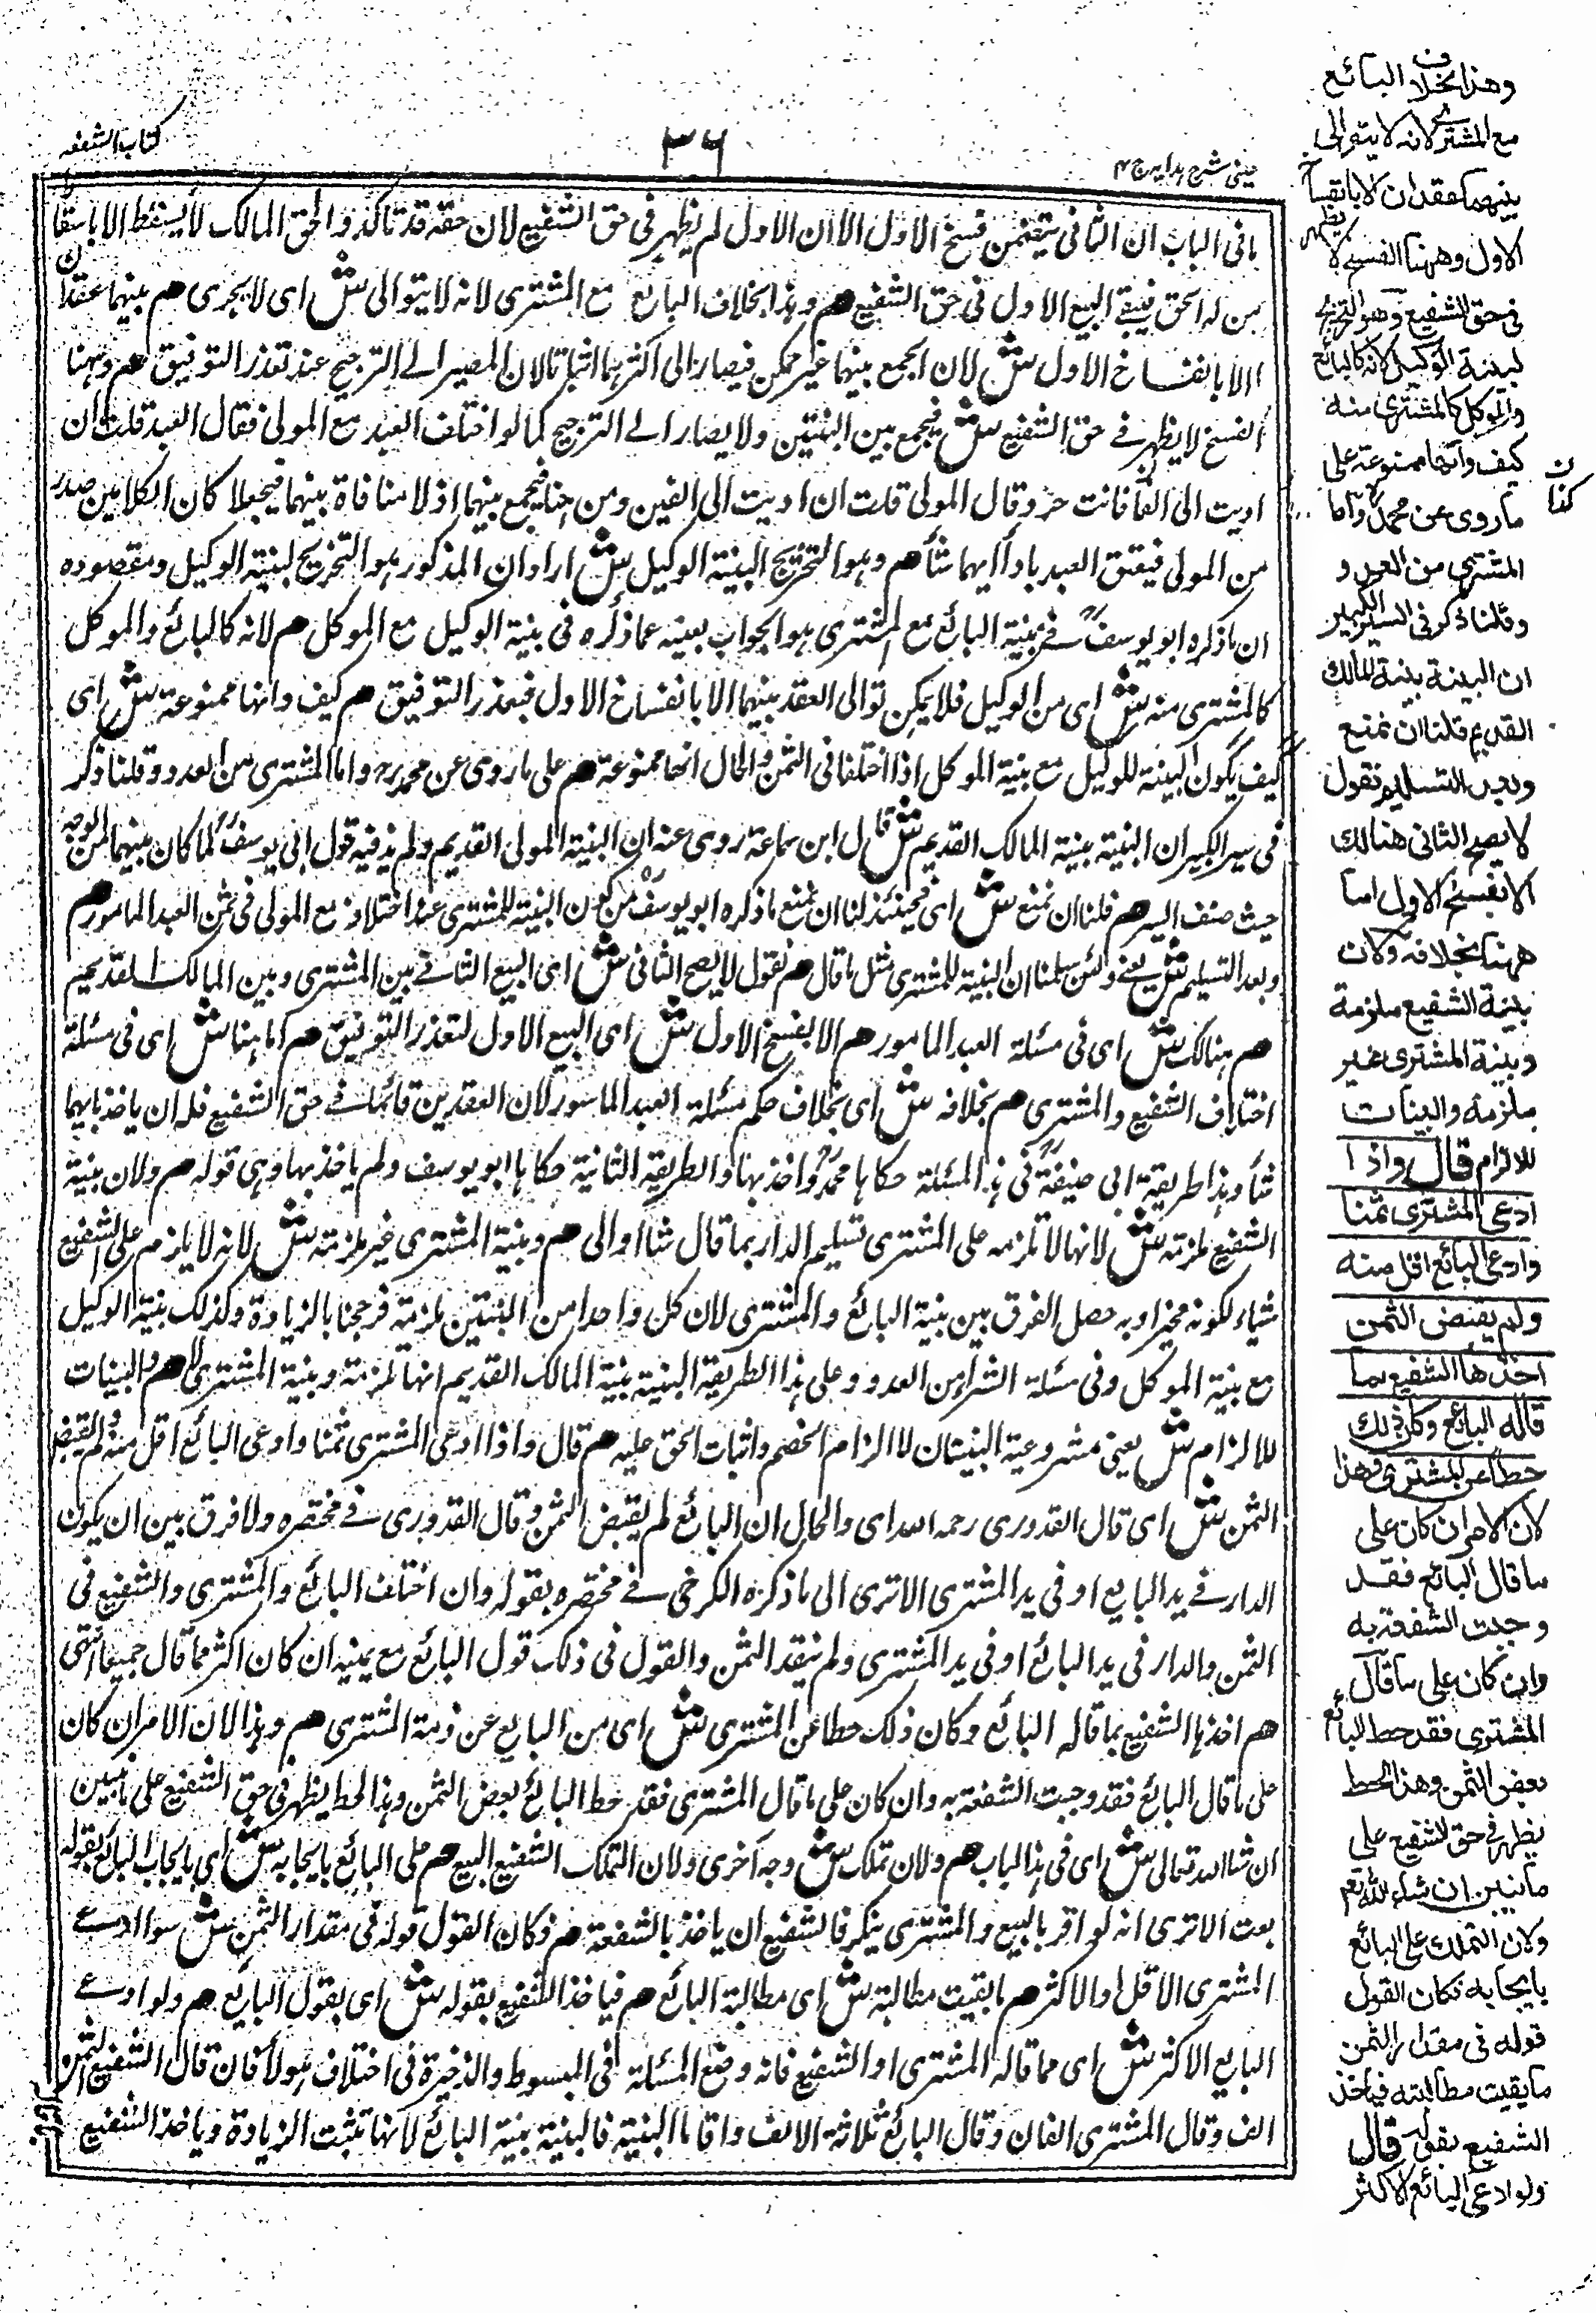 كتاب الشفعه
٣٦
عينى شرح هدايه ج ٤
ما فى الباب ان الثانى يتضمن فسخ الاول الا ان الاول لم يظهر فى حق الشفيع لان حقه قد تاكد والحق المالك لا يسقط الا باسقا
من له الحق فيبقى البيع الاول فى حق الشفيع هم وهذا بخلاف البائع مع المشترى لانه لا يتوالى ش اى لا يجرى هم بينهما عقدا
الا بانفساخ الاول ش لان الجمع بينهما غير ممكن فيصار الى اكثرهما اثباتا لان المصير الى الترجيح عند تعذر التوفيق هم وههنا
الفسخ لا يظهر فى حق الشفيع ش فيجمع بين البينتين ولا يصار الى الترجيح كما لو اختلف العبد مع المولى فقال العبد قلت ان
اديت الى الفا فانت حر وقال المولى قلت ان اديت الى الفين ومن هنا يجمع بينهما اذ لا منافاة بينهما فيجعلا كان الكلامين صدر
من المولى فيعتق العبد باداء ايهما شاء هم وهو التخريج البينة الوكيل ش اراد ان المذكور هو التخريج لبينة الوكيل ومقصوده
ان ما ذكره ابو يوسف فى بينة البائع مع المشترى هو الجواب بعينه عما ذكره فى بينة الوكيل مع الموكل هم لانه كالبائع والموكل
كالمشترى منه ش اى من الوكيل فلا يمكن توالى العقد بينهما الا بانفساخ الاول فتعذر التوفيق هم كيف وانها ممنوعة ش اى
كيف يكون البينة للوكيل مع بينة الموكل اذا اختلفا فى الثمن والحال انها ممنوعة هم على ما روى عن محمد رح واما المشترى من العدو وقلنا ذكر
فى سير الكبير ان البينة بينة المالك القديم ش قال ابن سماعة روى عنه ان البينة المولى القديم ولم يذ فيه قول ابى يوسف لما كان بينهما من الوجه
حيث صنف السير هم قلنا ان نمنع ش اى فحينئذ لنا ان نمنع ما ذكره ابو يوسف من كون البينة للمشترى عند اختلافه مع المولى فى ثمن العبد المامور هم
وبعد التسليم ش يعنى ولئن سلمنا ان البينة للمشترى مثل ما قال هم نقول لا يصح الثانى ش اى البيع الثانى بين المشترى وبين المالك القديم
هم هنالك ش اى فى مسئلة العبد المامور هم الا بفسخ الاول ش اى البيع الاول لتعذر التوفيق هم اما ههنا ش اى فى مسئلة
اختلاف الشفيع والمشترى هم بخلافه ش اى بخلاف حكم مسئلة العبد الماسور لان العقدين قائمان فى حق الشفيع فله ان ياخذ بايهما
شاء وهذا طريقة ابى حنيفة فى هذه المسئلة حكاها محمد واخذ بها والطريقة الثانية حكاها ابو يوسف ولم ياخذ بها وهى قوله هم ولان بينة
الشفيع ملزمة ش لانها لا تلزمه على المشترى تسليم الدار بما قال شاء او ابى هم وبينة المشترى غير ملزمة ش لانه لا يلزم على الشفيع
شياء لكونه مخيرا وبه حصل الفرق بين بينة البائع والمشترى لان كل واحدا من البينتين ملزمة فرجحنا بالزيادة وكذلك بينة الوكيل
مع بينة الموكل وفى مسئلة الشراء من العدو وعلى هذا الطريقة البينة بينة المالك القديم انها ملزمة وبينة المشترى لا هم والبينات
للالزام ش يعنى مشروعية البينتان لالزام الخصم واثبات الحق عليه هم قال واذا ادعى المشترى ثمنا وادعى البائع اقل منه ولم يقبض
الثمن ش اى قال القدورى رحمه الله اى والحال ان البائع لم يقبض الثمن وقال القدورى فى مختصره ولا فرق بين ان يكون
الدار فى يد البايع او فى يد المشترى الا ترى الى ما ذكره الكرخى فى مختصره بقوله وان اختلف البائع والمشترى والشفيع فى
الثمن والدار فى يد البائع او فى يد المشترى ولم ينقد الثمن والقول فى ذلك قول البائع مع يمينه ان كان اكثر مما قال جميعا انتهى
هم اخذها الشفيع بما قاله البائع وكان ذلك حطا عن المشترى ش اى من البايع عن ذمة المشترى هم وهذا لان الامر ان كان
على ما قال البائع فقد وجبت الشفعة به وان كان على ما قال المشترى فقد حط البائع بعض الثمن وهذا الحط يظهر فى حق الشفيع على ما نبين
ان شاء الله تعالى ش اى فى هذا الباب هم ولان تملك ش وجه آخرى ولان التملك الشفيع البيع هم على البائع بايجابه ش اى بايجاب البائع بقوله
بعت الا ترى انه لو اقر بالبيع والمشترى ينكر فالشفيع ان ياخذ بالشفعة هم فكان القول قوله فى مقدار الثمن ش سوا ادعى
المشترى الاقل او الاكثر هم ما بقيت مطالبة ش اى مطالبة البائع هم فياخذ الشفيع بقوله ش اى بقول البايع هم ولو ادعى
البايع الاكثر ش اى مما قاله المشترى او الشفيع فانه وضع المسئلة فى المبسوط والذخيرة فى اختلاف هولاء فان قال الشفيع الثمن
الف وقال المشترى الفان وقال البائع ثلاثة الالف واقاما البينة فالبينة بينة البائع لانها تثبت الزيادة وياخذ الشفيع
وهذا بخلاف البائع
مع المشترى لانه لا يتوالى
بينهما عقدان الا بانفسا
الاول وههنا الفسخ لا يظهر
فى حق الشفيع وهو التخريج
لبينة الوكيل لانه كالبائع
والموكل كالمشترى منه
كيف وانها ممنوعة على
ما روى عن محمد واما
المشترى من العدو و
وقلنا ذكر فى السير الكبير
ان البينة بينة المالك
القديم قلنا ان نمنع
وبعد التسليم نقول
لا يصح الثانى هنالك
الا بفسخ الاول اما
ههنا بخلافه ولان
بينة الشفيع ملزمة
وبينة المشترى غير
ملزمة والبينات
للالزام قال واذا
ادعى المشترى ثمنا
وادعى البائع اقل منه
ولم يقبض الثمن
اخذها الشفيع بما
قاله البائع وكان ذلك
حطا عن المشترى وهذا
لان الامر ان كان على
ما قال البائع فقد
وجبت الشفعة به
وان كان على ما قال
المشترى فقد حط البائع
بعض الثمن وهذا الحط
يظهر فى حق الشفيع على
ما نبين ان شاء الله تعم
ولان التملك على البائع
بايجابه فكان القول
قوله فى مقدار الثمن
ما بقيت مطالبته فياخذ
الشفيع بقوله قال
ولو ادعى البائع الاكثر